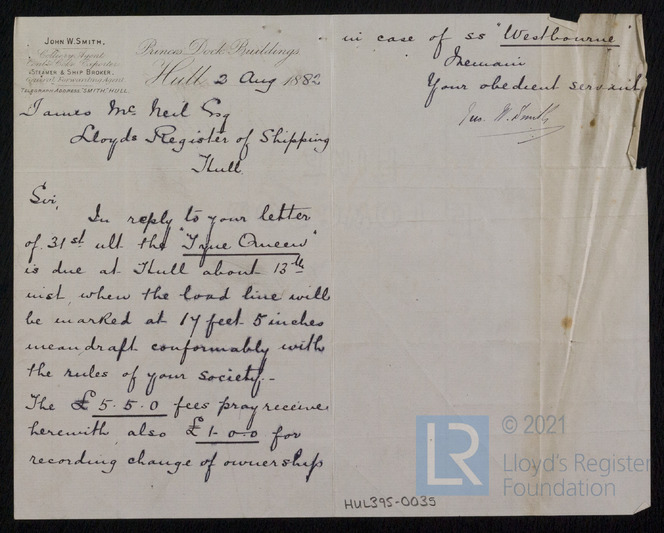 John W. Smith,
Colliery Agent
Coal & Coke Exporter
Steamer & Ship Broker,
General Forwarding Agent
Telegraph Address "Smith" Hull.
Princes Dock Buildings
Hull 2 Aug 1882
James Mc Neil Esq
Lloyds Register of Shipping
Hull
Sir,
In reply to your letter
of 31st ult the "Tyne Queen"
is due at Hull about 13th
inst, when the load line will
be marked at 17 feet 5 inches
mean draft conformably with
the rules of your society.-
The £5.5.0 fees pray receive
herewith, also £1.0.0 for
recording change of ownership
in case of ss "Westbourne"
I remain
Your obedient servant
Jno. W. Smith
LR
© 2021
Lloyd's Register
Foundation
HUL395-0035